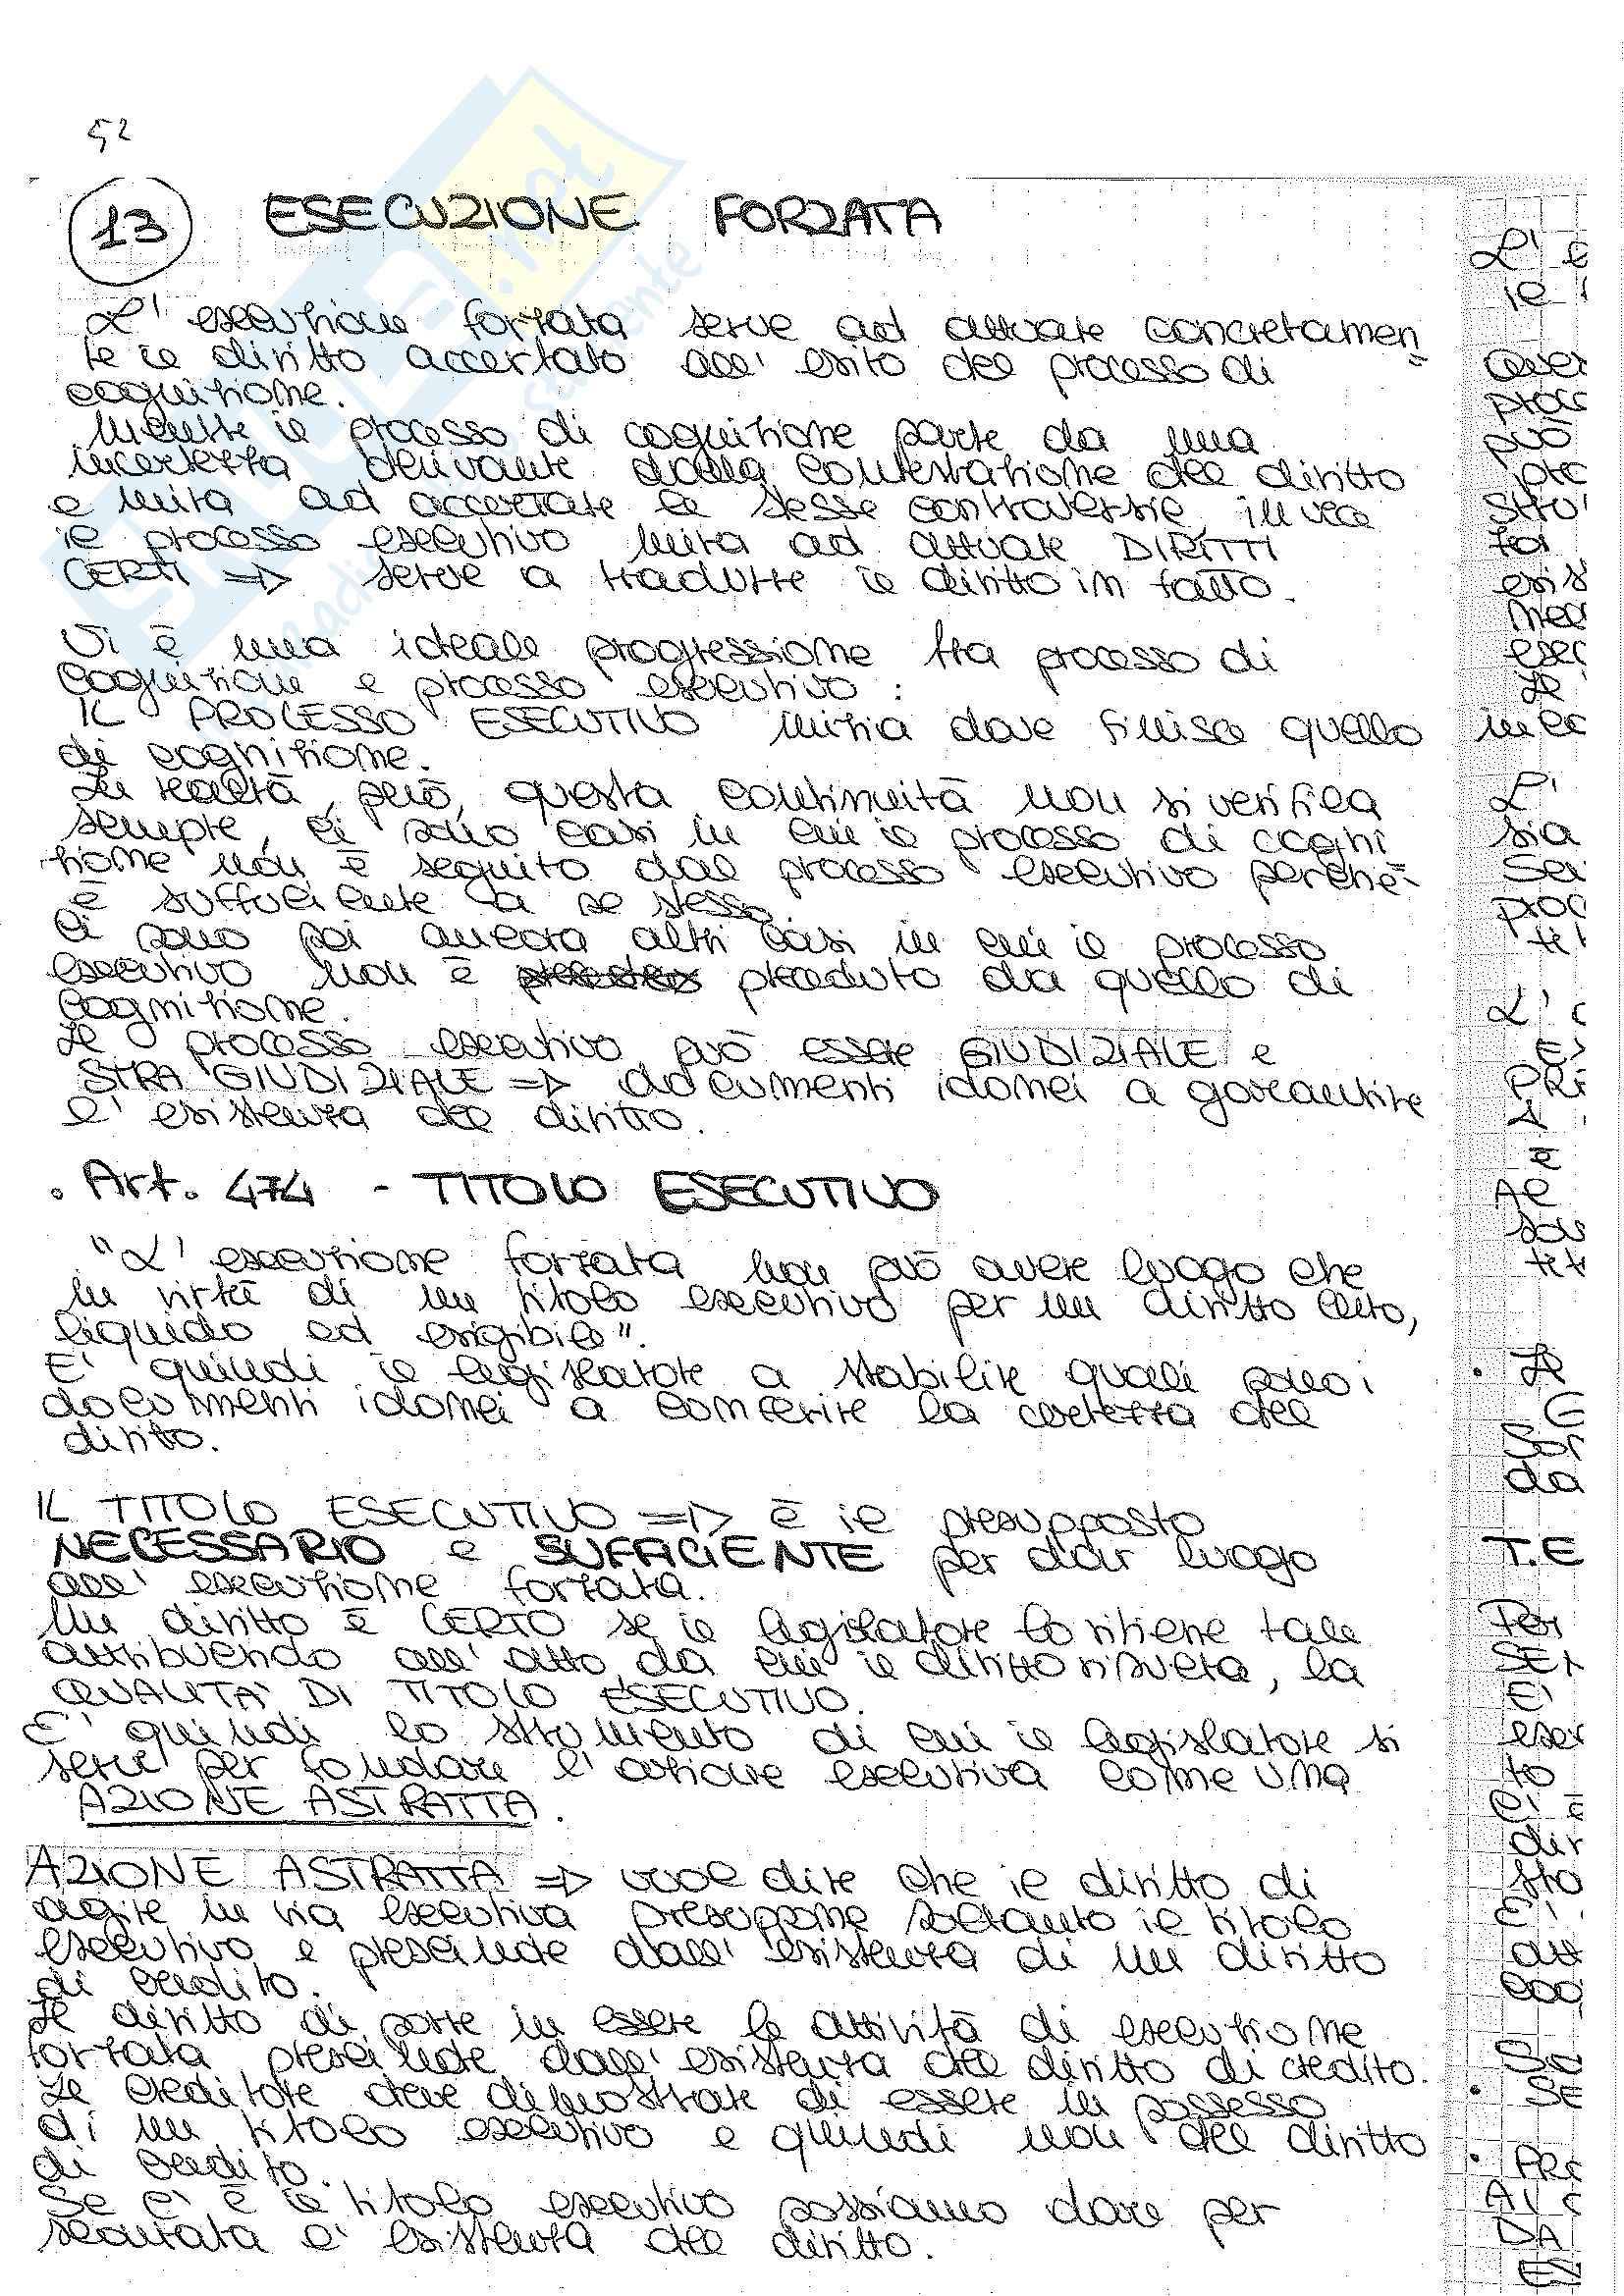 52
13 ESECUZIONE FORZATA
L' esecuzione forzata serve ad attuare concretamen
te il diritto accertato all' esito del processo di
cognizione.
Mentre il processo di cognizione parte da una
incertezza derivante dalla contestazione del diritto
e mira ad accertare le stesse controversie, invece
il processo esecutivo mira ad attuare DIRITTI
CERTI => serve a tradurre il diritto in fatto.
Vi è una ideale progressione tra processo di
cognizione e processo esecutivo:
IL PROCESSO ESECUTIVO inizia dove finisce quello
di cognizione.
In realtà, però, questa continuità non si verifica
sempre, ci sono casi in cui il processo di cogni
zione non è seguito dal processo esecutivo perché
è sufficiente a se stesso.
Ci sono poi ancora altri casi in cui il processo
esecutivo non è preceduto da quello di
cognizione.
Il processo esecutivo può essere GIUDIZIALE e
STRAGIUDIZIALE => documenti idonei a garantire
l' esistenza del diritto.
• Art. 474 - TITOLO ESECUTIVO
"L' esecuzione forzata non può avere luogo che
in virtù di un titolo esecutivo per un diritto certo,
liquido ed esigibile".
E' quindi il legislatore a stabilire quali sono i
documenti idonei a conferire la certezza del
diritto.
IL TITOLO ESECUTIVO => è il presupposto
NECESSARIO e SUFFICIENTE per dar luogo
all' esecuzione forzata.
Un diritto è CERTO se il legislatore lo ritiene tale
attribuendo all' atto, da cui il diritto risulta, la
QUALITA' DI TITOLO ESECUTIVO.
E' quindi lo strumento di cui il legislatore si
serve per fondare l' azione esecutiva come una
AZIONE ASTRATTA.
AZIONE ASTRATTA => vuol dire che il diritto di
agire in via esecutiva presuppone soltanto il titolo
esecutivo e prescinde dall' esistenza di un diritto
di credito.
Il diritto di porre in essere le attività di esecuzione
forzata prescinde dall' esistenza del diritto di credito.
Il creditore deve dimostrare di essere in possesso
di un titolo esecutivo e quindi non del diritto
di credito.
Se c' è il titolo esecutivo possiamo dare per
scontata l' esistenza del diritto.